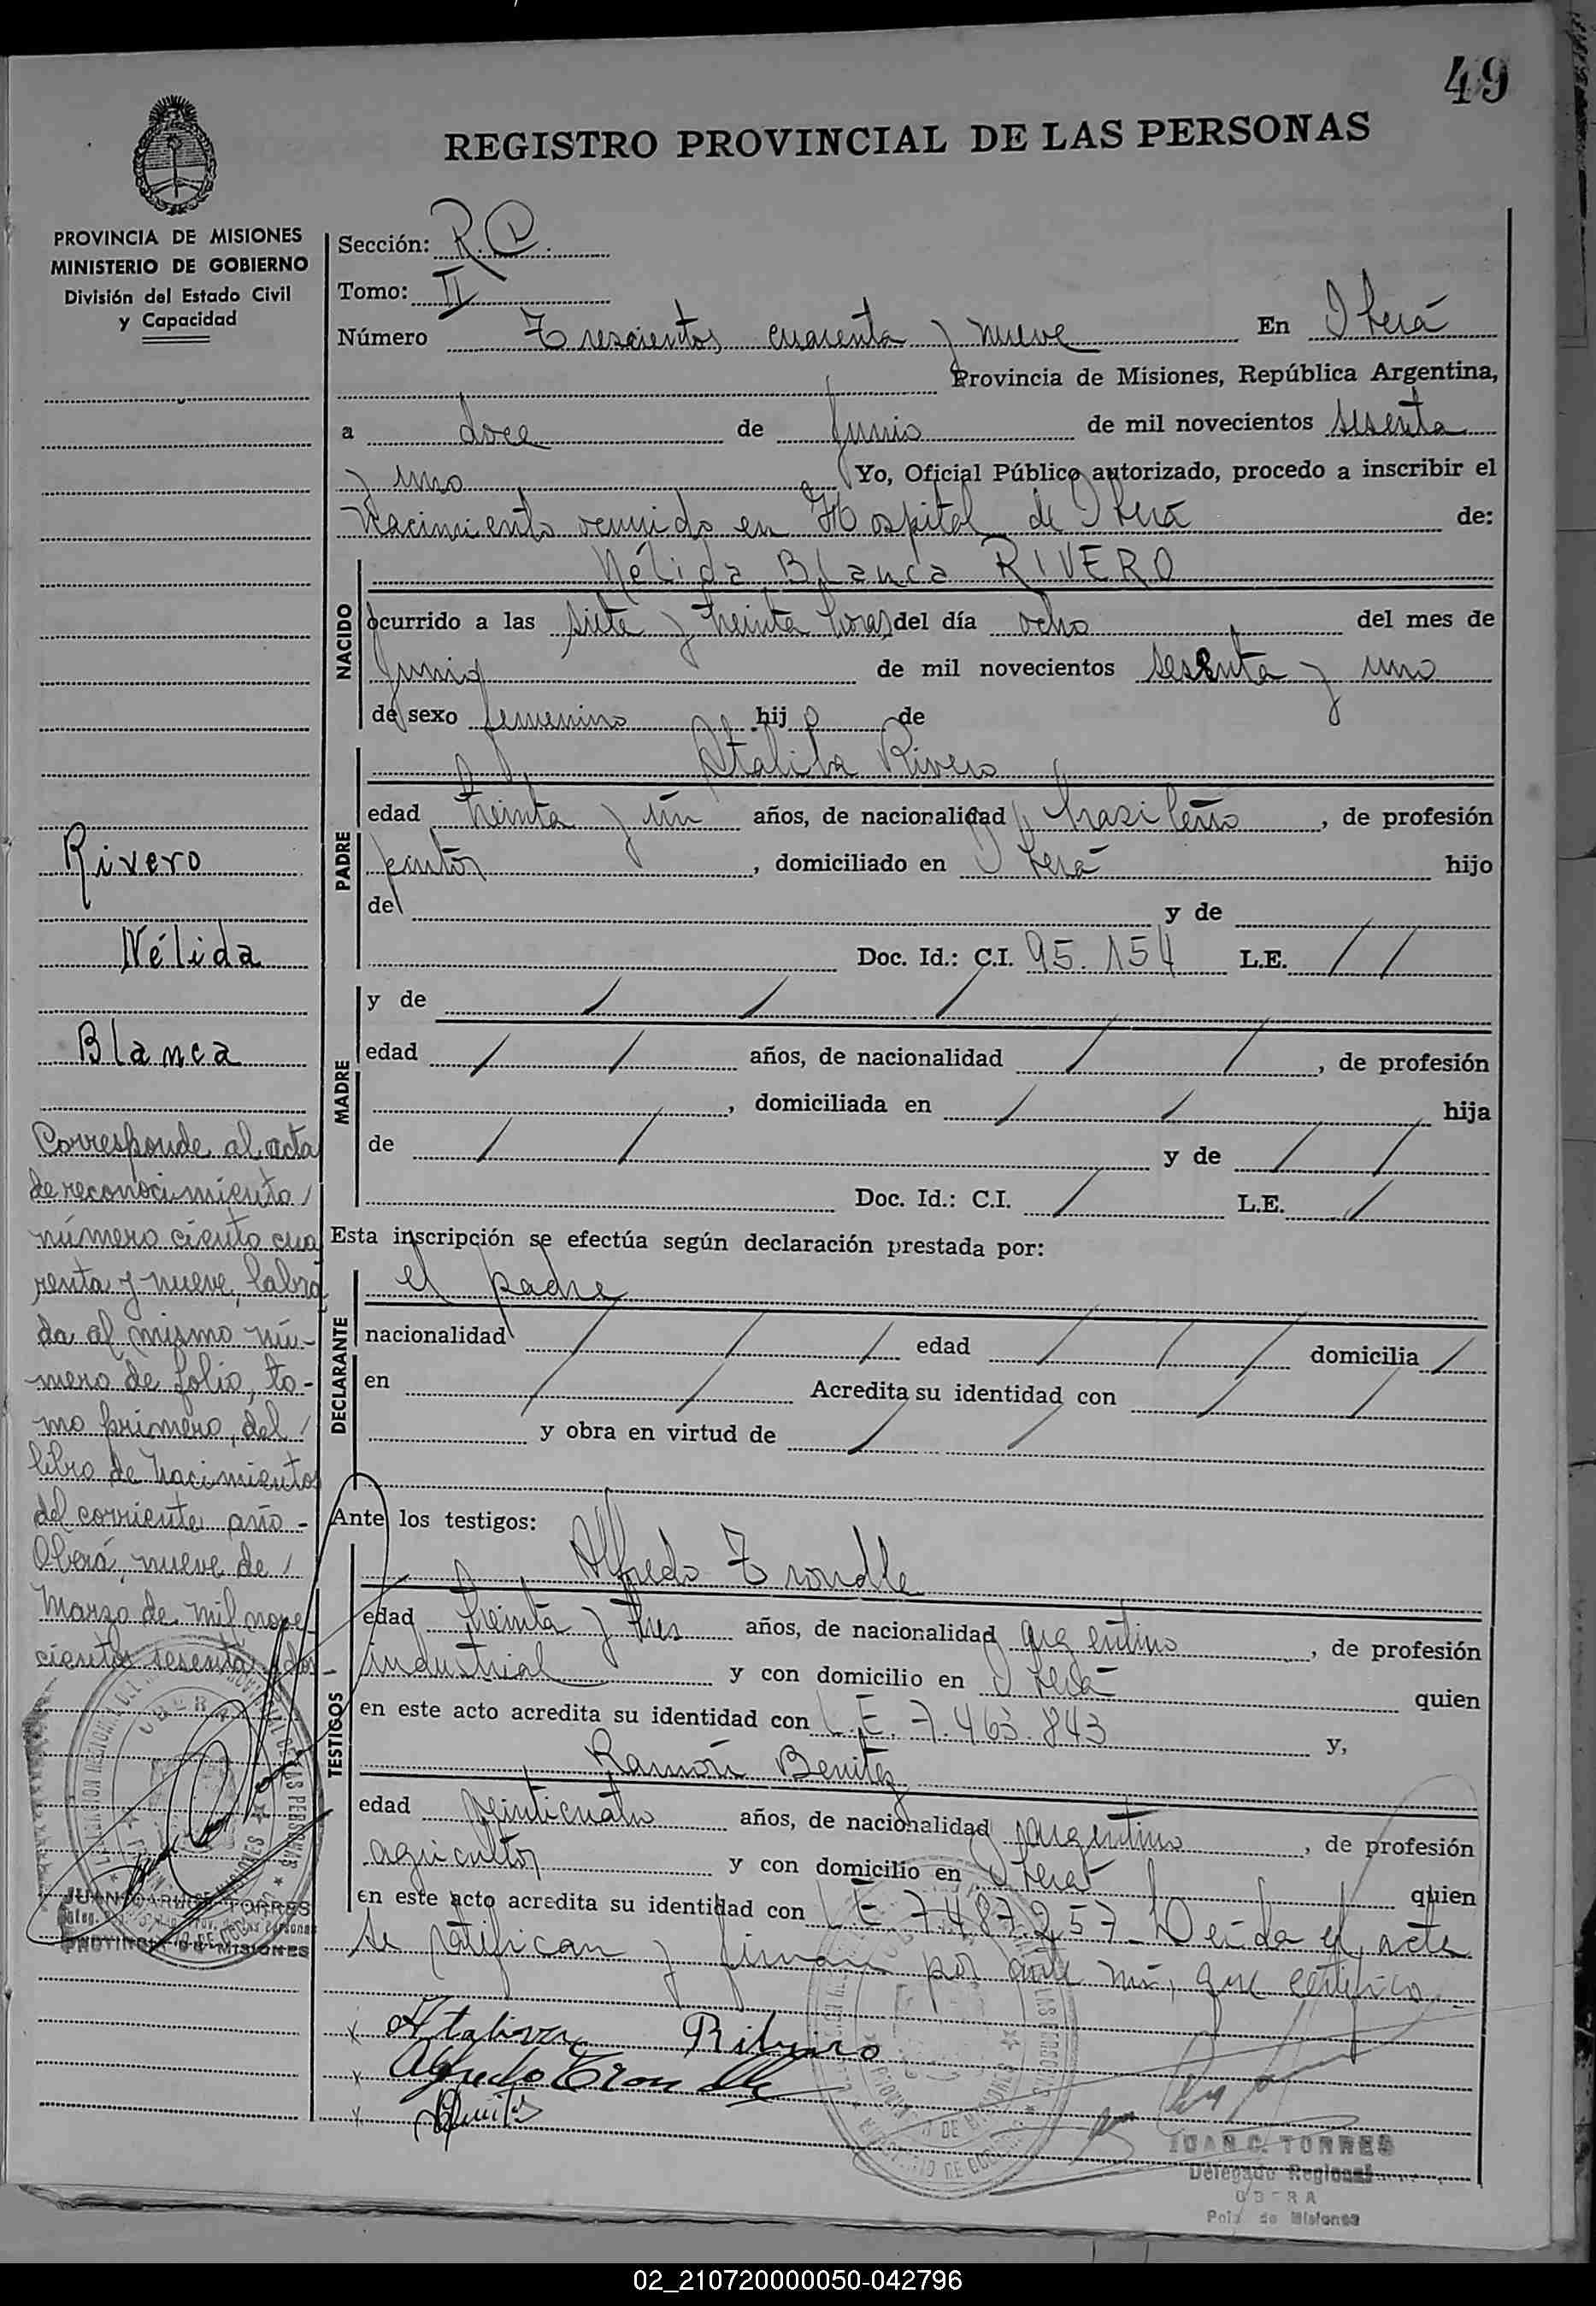 49
REGISTRO PROVINCIAL DE LAS PERSONAS
PROVINCIA DE MISIONES
MINISTERIO DE GOBIERNO
División del Estado Civil
y Capacidad
Rivero
Nélida
Blanca
Corresponde al acta
de reconocimiento
número ciento cua
renta y nueve, labra
da al mismo nú-
mero de folio, to-
mo primero, del
libro de Nacimientos
del corriente año -
Oberá, nueve de
Marzo de mil nove-
cientos sesenta y dos -
JUAN CARLOS TORRES
PROVINCIA DE MISIONES
Sección: R.P.
Tomo: II
Número Trescientos cuarenta y nueve En Oberá
Provincia de Misiones, República Argentina,
a doce de Junio de mil novecientos sesenta
y uno Yo, Oficial Público autorizado, procedo a inscribir el
Nacimiento ocurrido en Hospital de Oberá de:
NACIDO
Nélida Blanca RIVERO
ocurrido a las siete y treinta horas del día ocho del mes de
Junio de mil novecientos sesenta y uno
de sexo femenino hij o de
PADRE
Ataliba Rivero
edad treinta y un años, de nacionalidad brasileño, de profesión
pintor, domiciliado en Oberá hijo
de y de
Doc. Id.: C.I. 95.154 L.E. / /
MADRE
y de / / /
edad / / años, de nacionalidad / /, de profesión
, domiciliada en / / hija
de / / y de / /
Doc. Id.: C.I. / L.E. /
Esta inscripción se efectúa según declaración prestada por:
DECLARANTE
el padre
nacionalidad / / / edad / / / domicilia /
en / / Acredita su identidad con / /
y obra en virtud de / /
Ante los testigos:
TESTIGOS
Alfredo Trondle
edad treinta y tres años, de nacionalidad argentino, de profesión
industrial y con domicilio en Oberá quien
en este acto acredita su identidad con L.E. 7.463.843 y,
Ramón Benitez
edad veinticuatro años, de nacionalidad argentino, de profesión
agricultor y con domicilio en Oberá quien
en este acto acredita su identidad con L.E. 7.487.257 - Leída el acta
se ratifican y firman por ante mí, que certifico.-
x Ataliva Ribero
x Alfredo Trondle
x Benites
JUAN C. TORRES
Delegado Regional
OBERA
Pcia. de Misiones
02_210720000050-042796